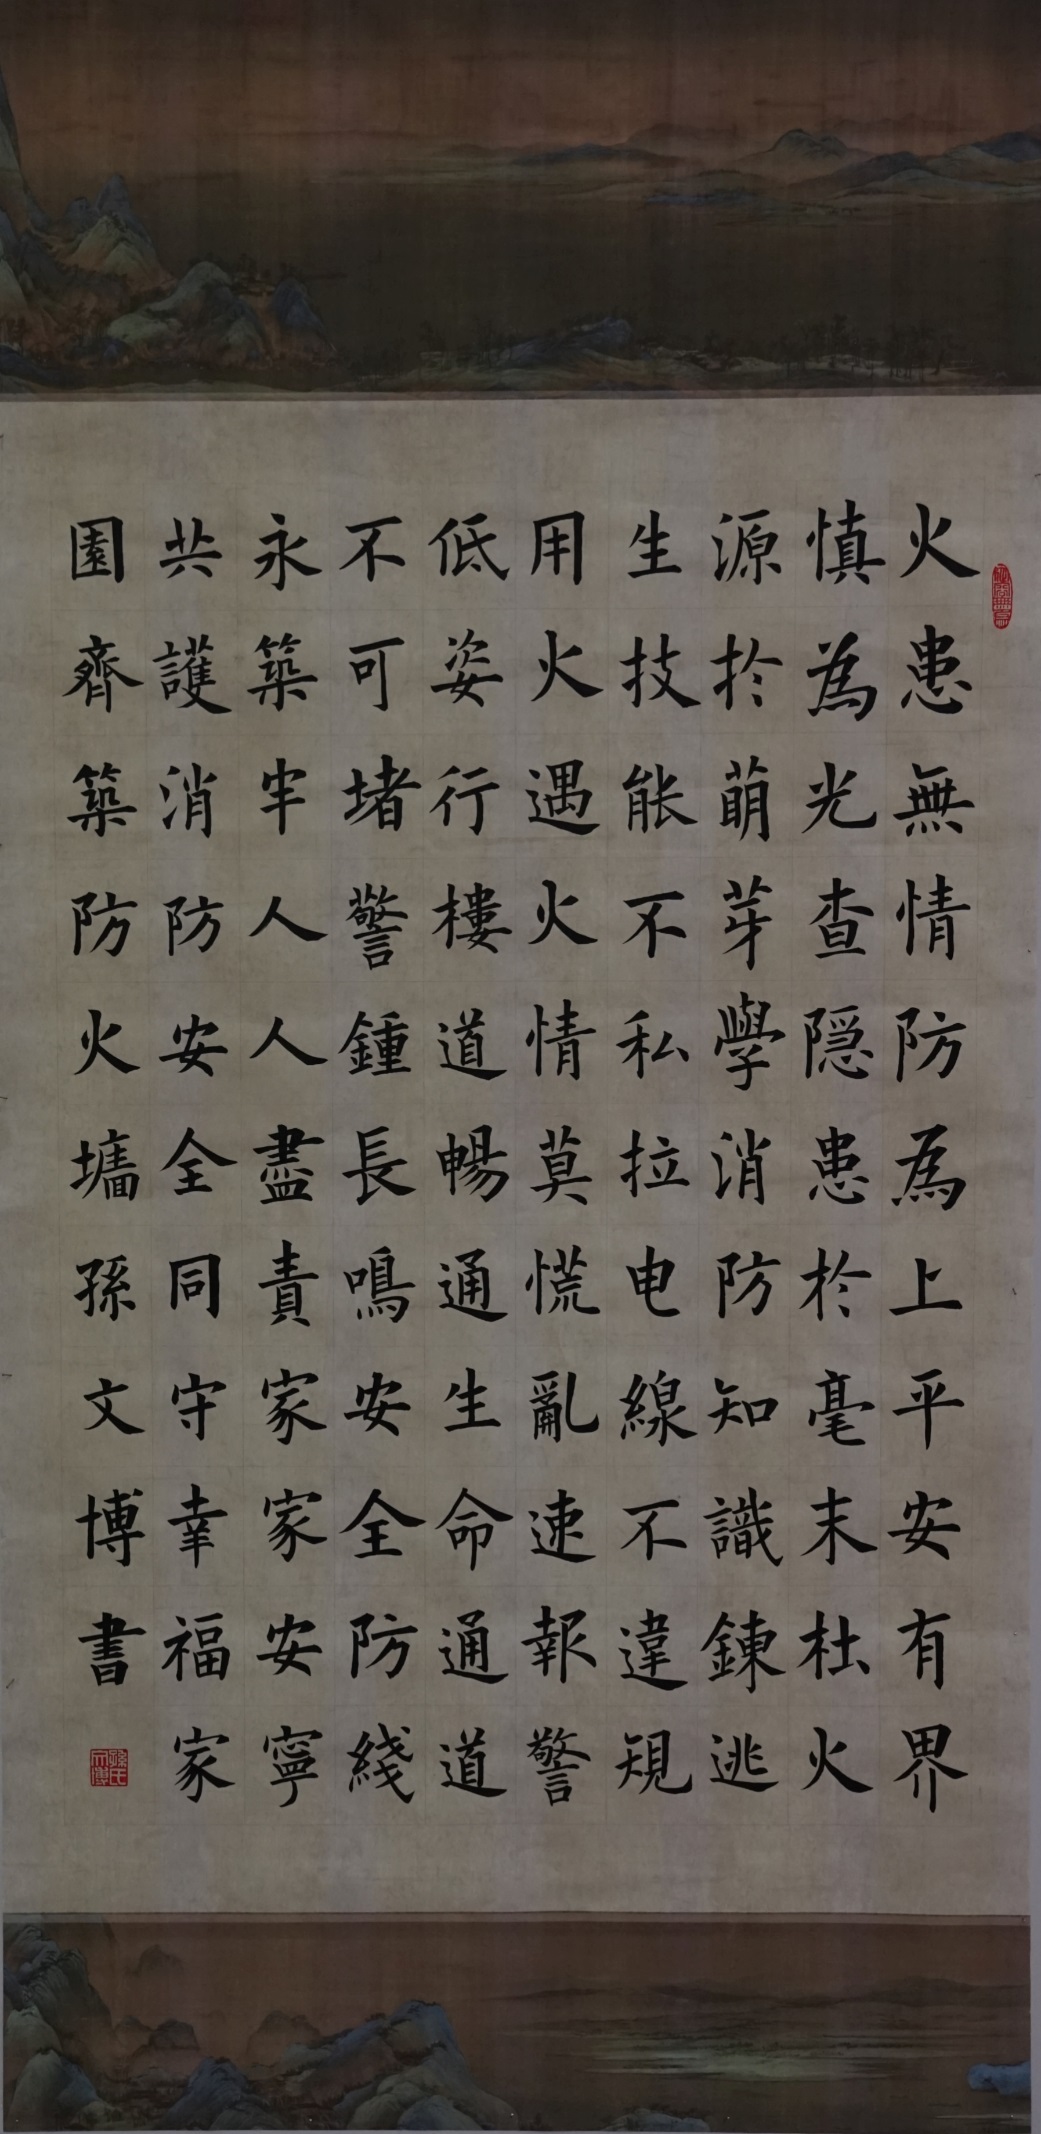 火患無情防為上平安有界
慎為光查隱患於毫末杜火
源於萠芽學消防知識鍊逃
生技能不私拉电線不違規
用火遇火情莫慌亂速報警
低姿行樓道暢通生命通道
不可堵警鍾長鳴安全防綫
永築牢人人盡責家家安寧
共護消防安全同守幸福家
園齊築防火墻孫文博書